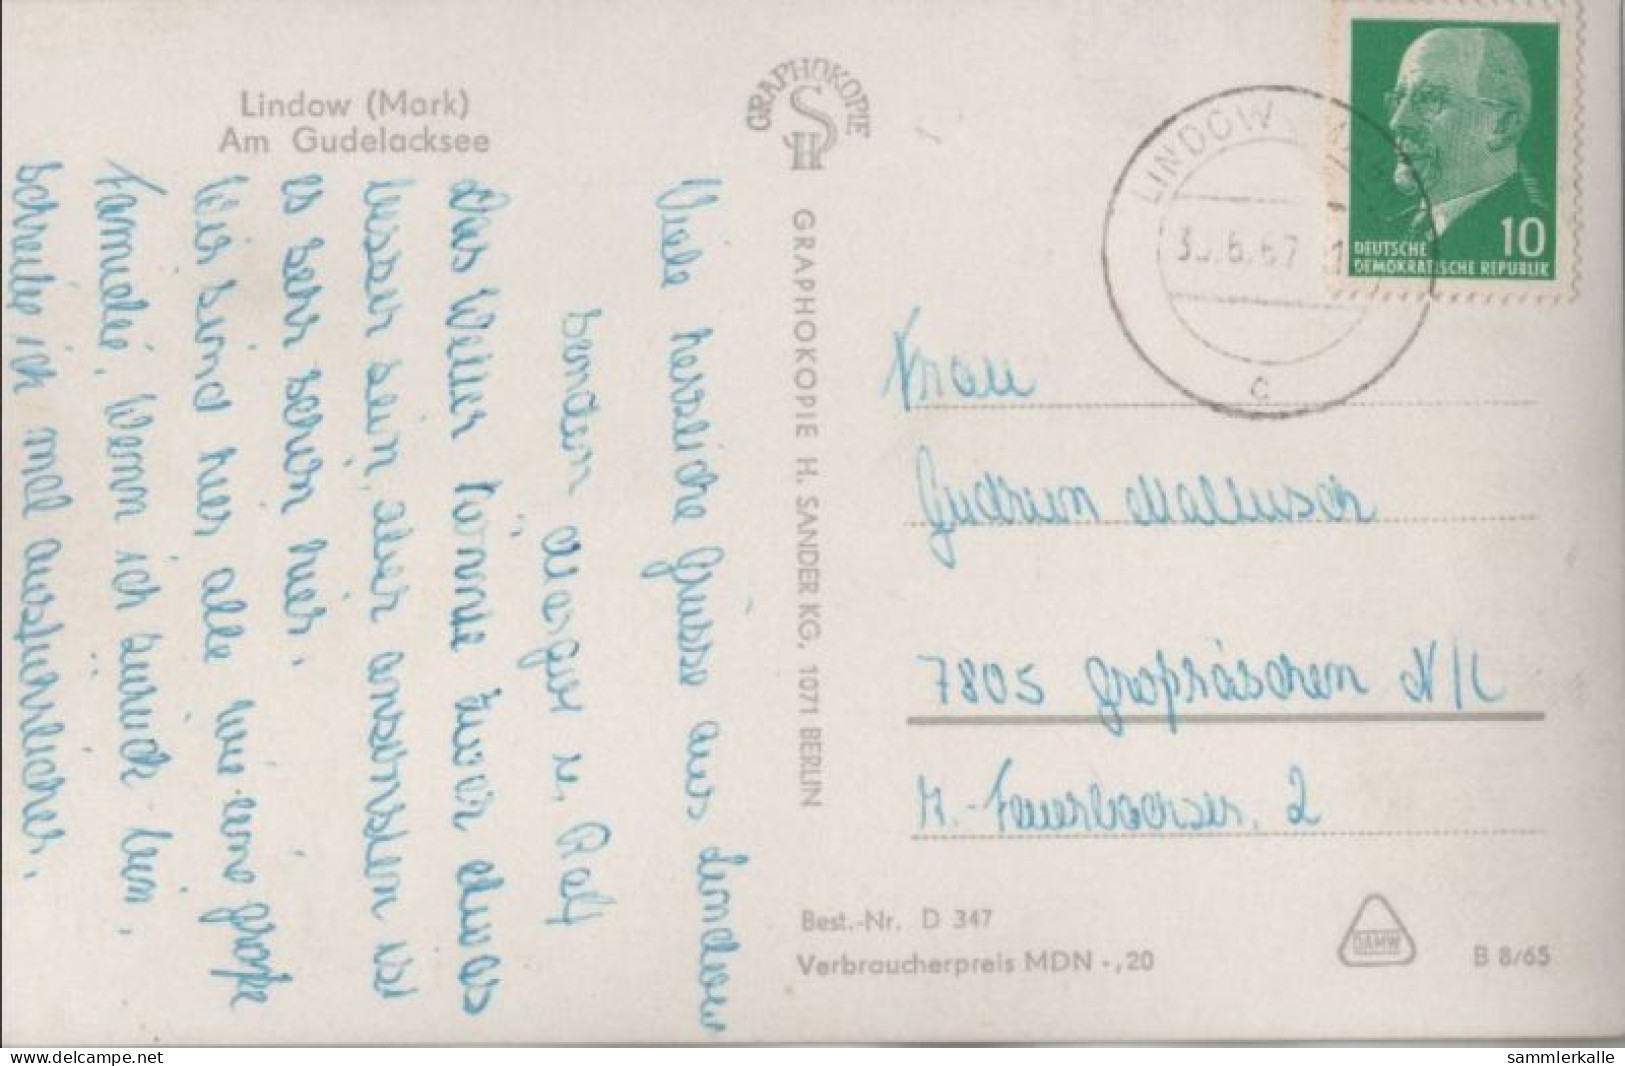 Lindow (Mark)
Am Gudelacksee
Viele herzliche Grüsse aus Lindow
senden u. Ralf
Das Wetter könnte zwar etwas
besser sein, aber ansonsten ist
es sehr schön hier.
Wir sind hier alle wie eine große
Familie. Wenn ich zurück bin,
schreibe ich mal ausführlicher.
GRAPHOKOPIE
SH
GRAPHOKOPIE H. SANDER KG, 1071 BERLIN
LINDOW
.6.67
c
10
DEUTSCHE
DEMOKRATISCHE REPUBLIK
Frau
Gudrun
7805 Großräschen N/L
Feuerbachstr. 2
Best.-Nr. D 347
Verbraucherpreis MDN -,20
DAMW
B 8/65
www.delcampe.net
sammlerkalle